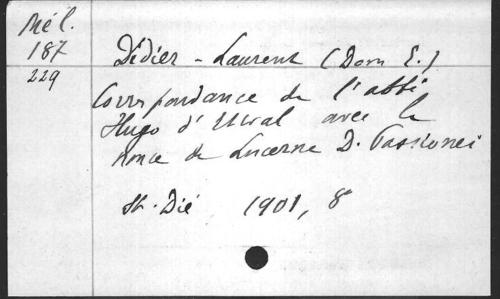 Mél.
187
229
Didier-Laurent (Dom E.)
Correspondance de l'abbé
Hugo d'Etival avec le
nonce de Lucerne D. Passionei
St. Dié 1901, 8